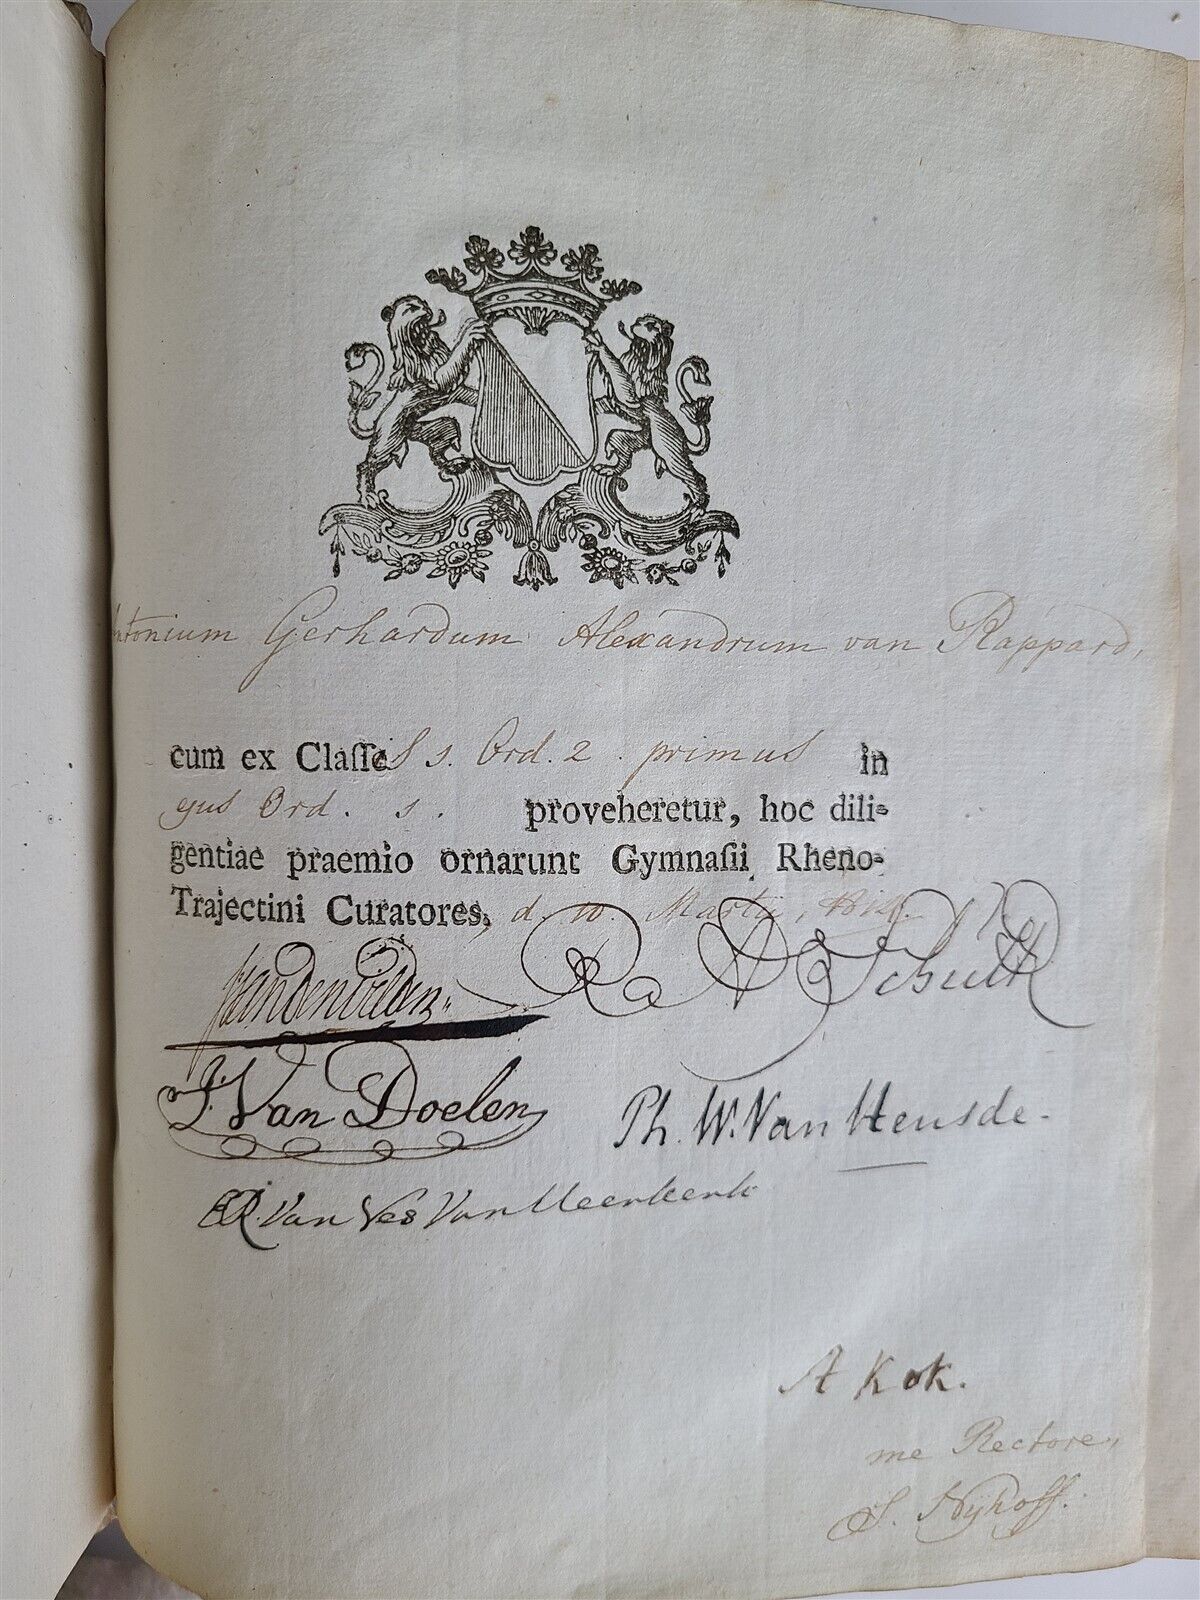 Antonium Gerhardum Alexandrum van Rappard,
cum ex Claſſe s. Ord. 2. primus in
ejus Ord. s. proveheretur, hoc dili-
gentiae praemio ornarunt Gymnaſii Rheno-
Trajectini Curatores, d. 10. Martii,
Van den Velden
R A Schuck
J. Van Doelen
Ph. W. Van Heusde.
Van Nes Van Meerkerk
A Kok.
me Rectore,
S. Nijhoff.